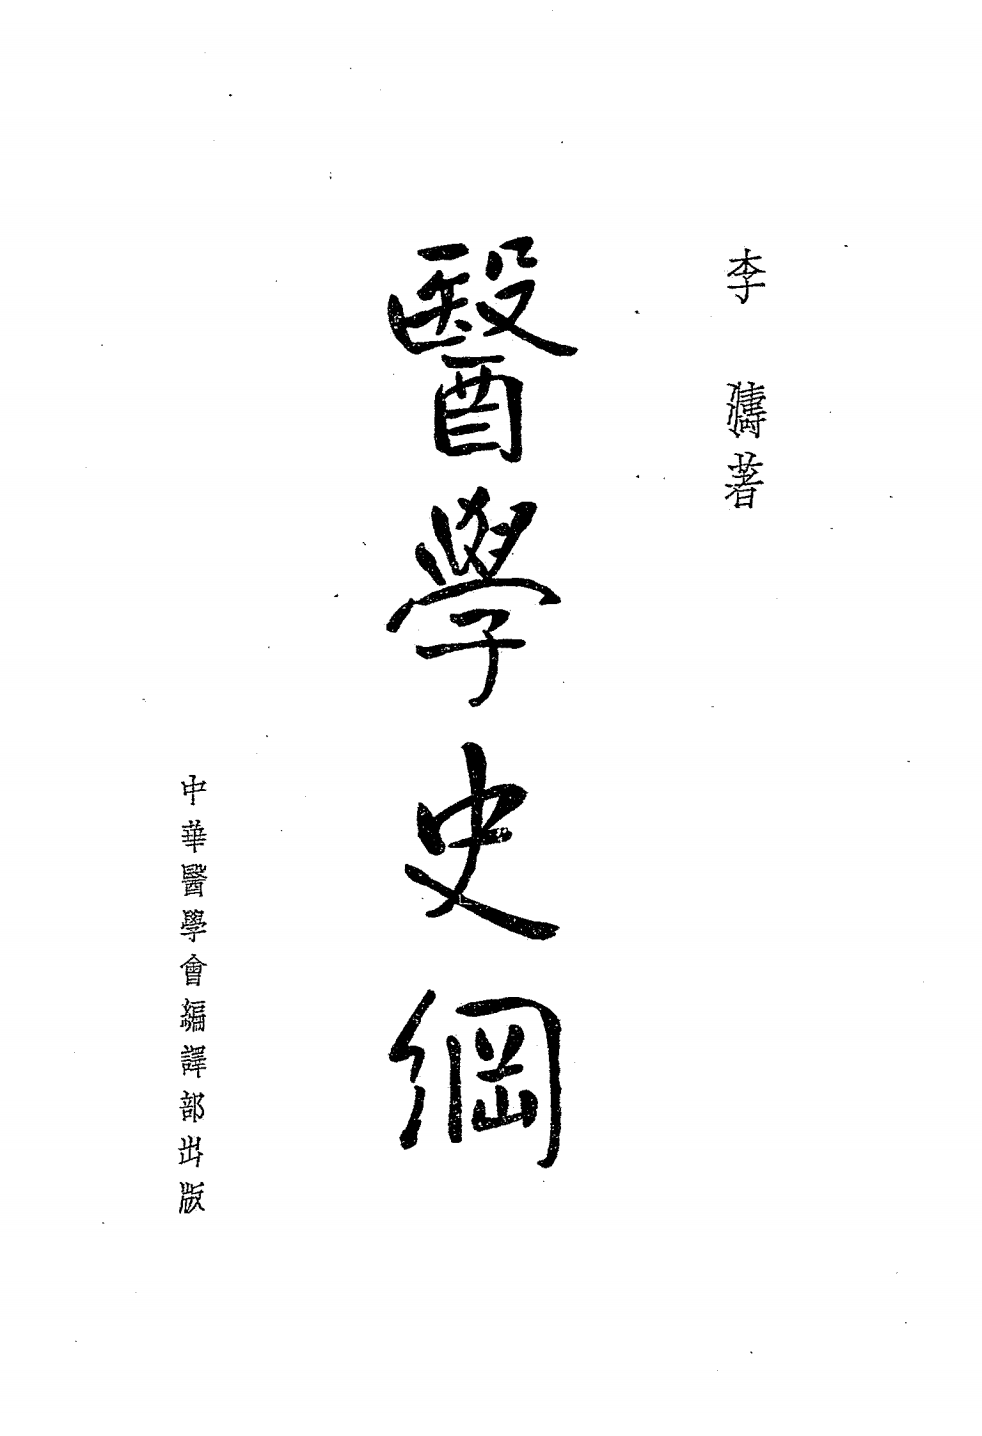 李濤著
醫學史綱
中華醫學會編譯部出版